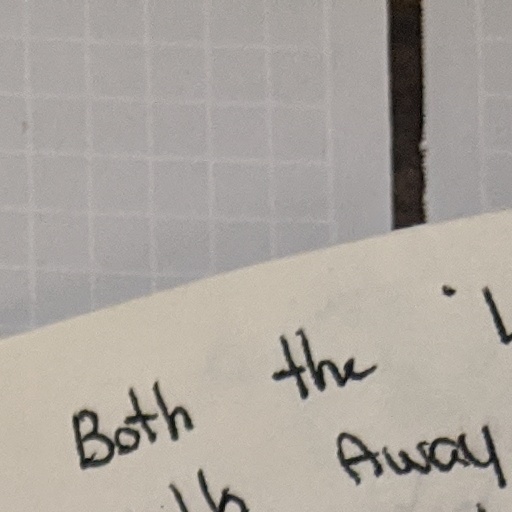 Both the
Away